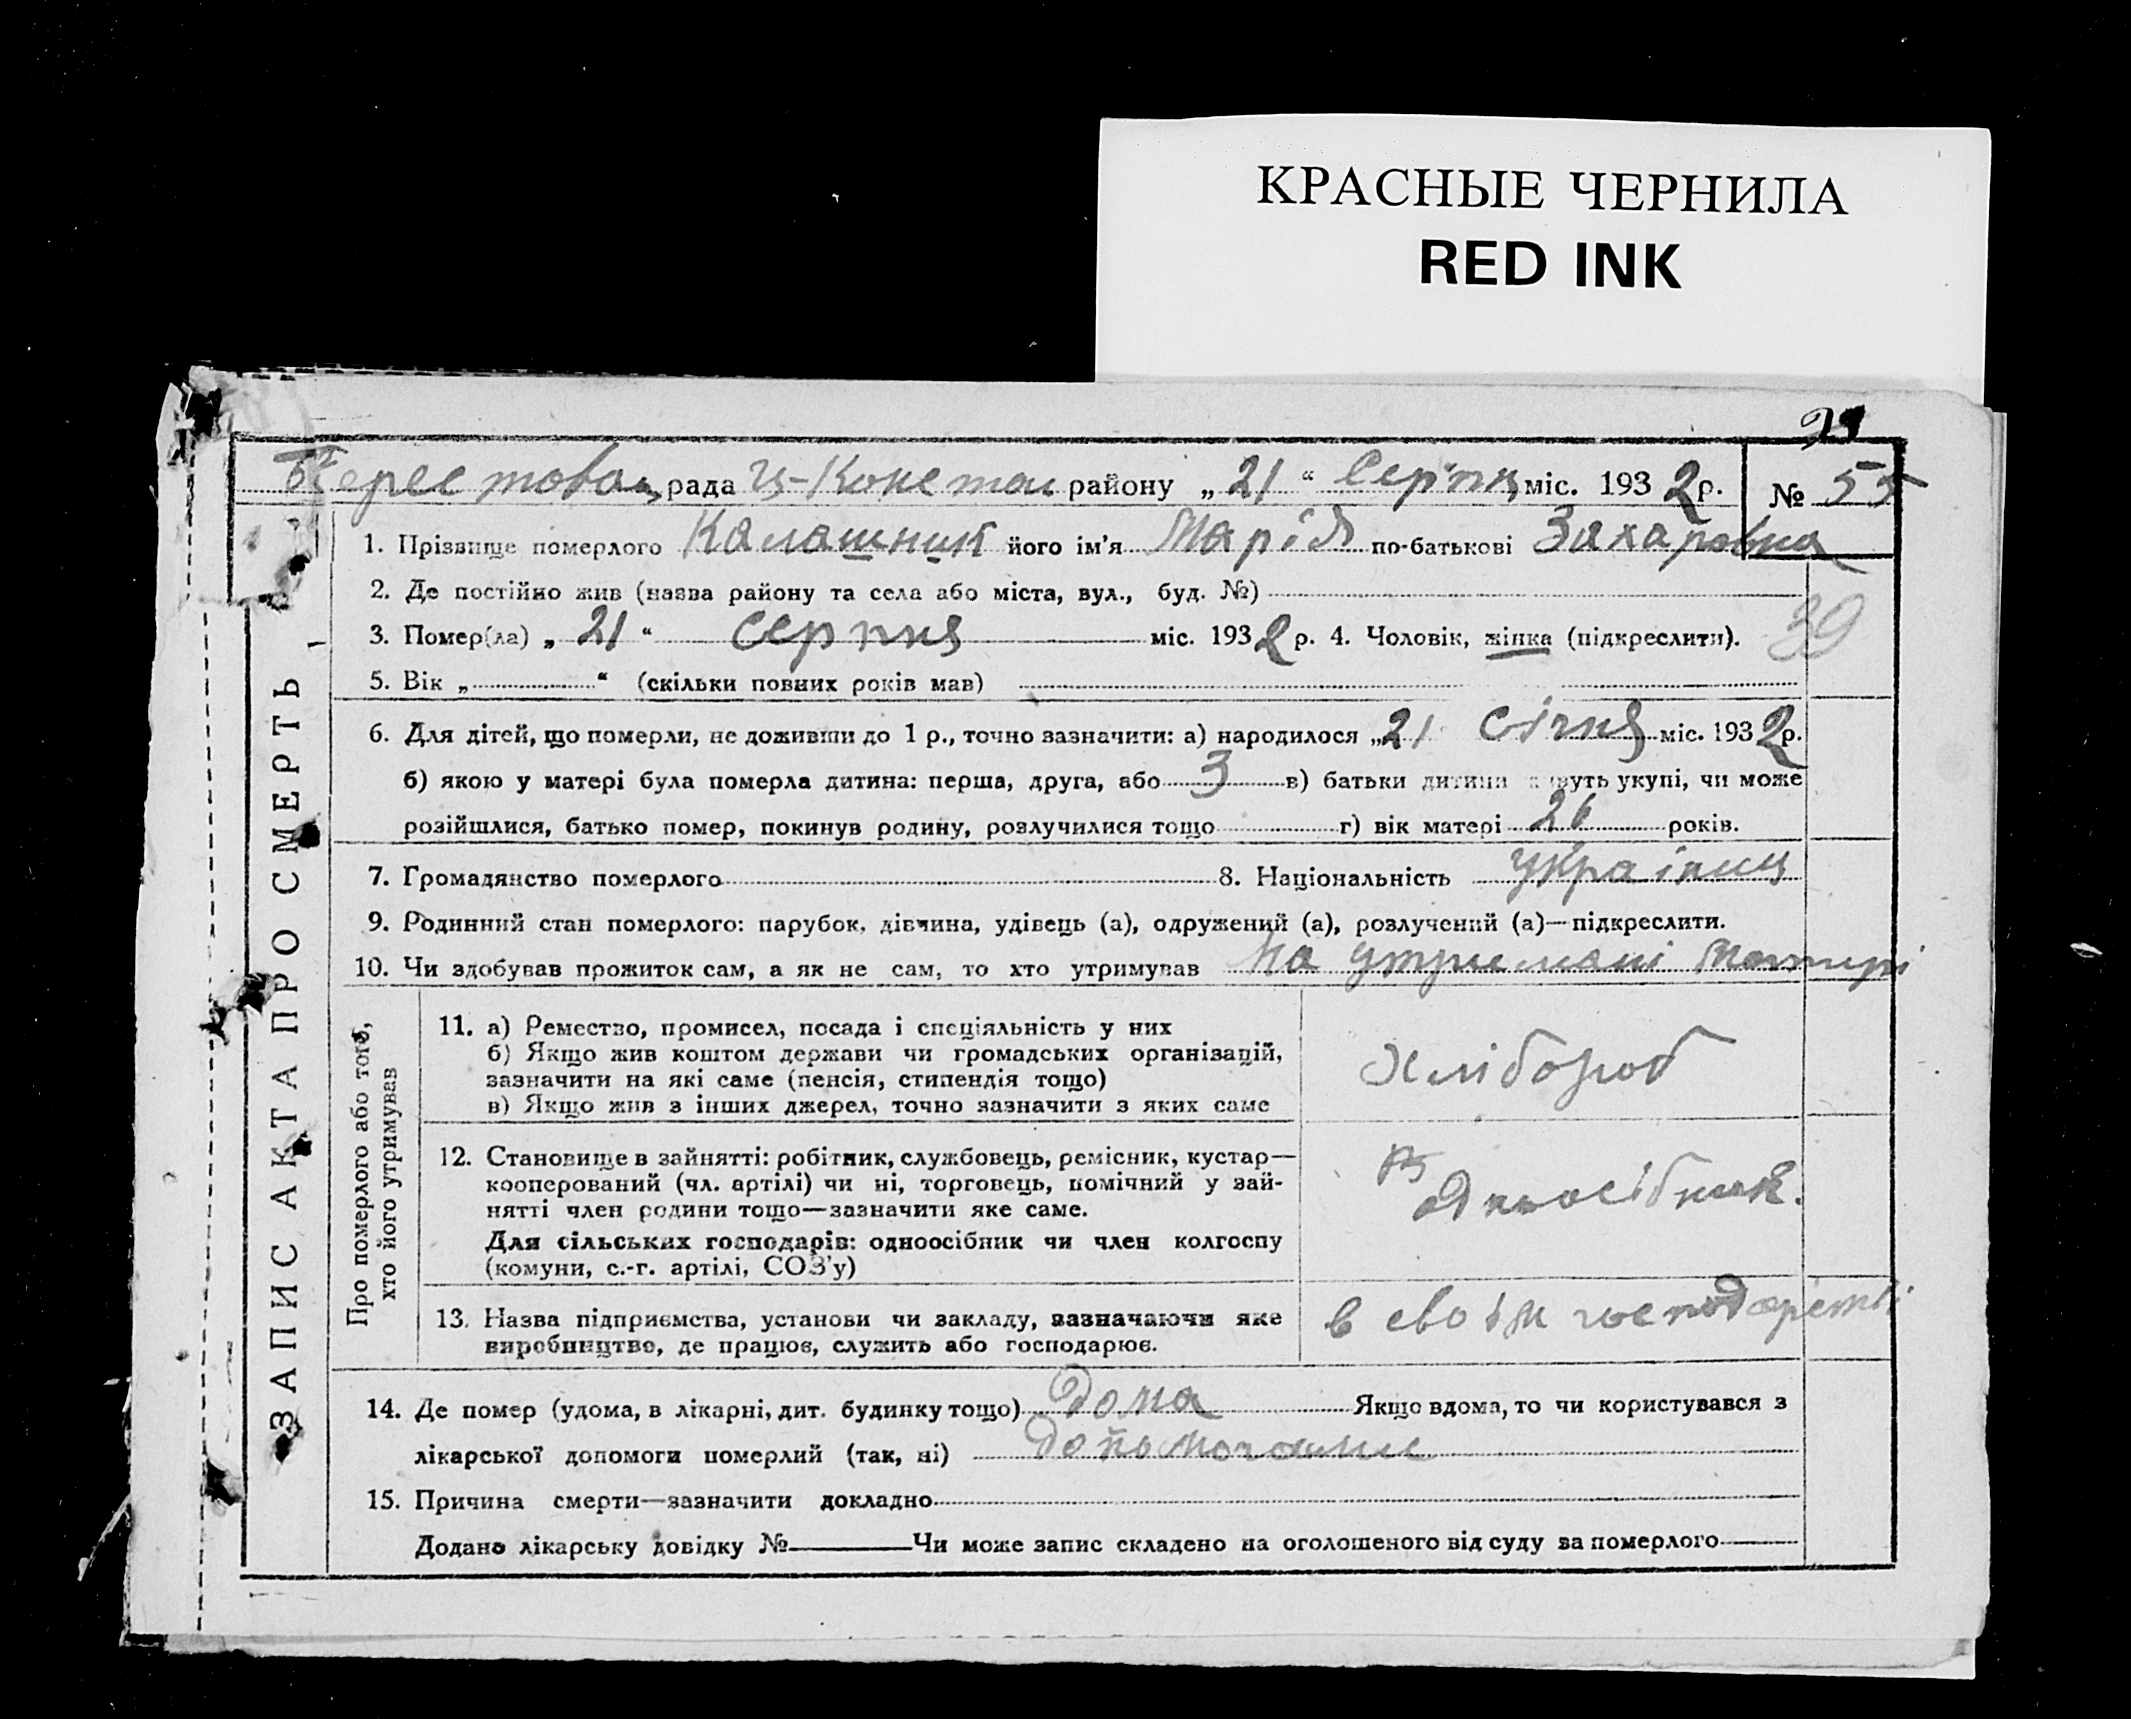 КРАСНЫЕ ЧЕРНИЛА
RED INK
рада районну „ 21 “ Серпня міс. 193 2 р. № 55
1. Прізвище померлого Калашник його ім’я Марія по-батькові Захаровна
2. Де постійно жив (назва району та села або міста, вул., буд. №)
39
3. Помер(ла) „ 21 “ серпня міс. 193 2 р. 4. Чоловік, жінка (підкреслити).
5. Вік „ “ (скільки повних років мав)
6. Для дітей, що померли, не доживши до 1 р., точно зазначити: а) народилося „ 21 січня міс. 193 2 р.
б) якою у матері була померла дитина: перша, друга, або 3 в) батьки дитини живуть укупі, чи може
розійшлися, батько помер, покинув родину, розлучилися тощо г) вік матері 26 років.
7. Громадянство померлого 8. Національність
9. Родинний стан померлого: парубок, дівчина, удівець (а), одружений (а), розлучений (а)—підкреслити.
10. Чи здобував прожиток сам, а як не сам, то хто утримував на утримані матирі
ЗАПИС АКТА ПРО СМЕРТЬ
Про померлого або того,
хто його утримував
11. а) Ремество, промисел, посада і спеціяльність у них
б) Якщо жив коштом держави чи громадських організацій,
зазначити на які саме (пенсія, стипендія тощо)
в) Якщо жив з інших джерел, точно зазначити з яких саме
хлібороб
12. Становище в зайнятті: робітник, службовець, ремісник, кустар—
кооперований (чл. артілі) чи ні, торговець, помічний у зай-
нятті член родини тощо—зазначити яке саме.
Для сільських господарів: одноосібник чи член колгоспу
(комуни, с.-г. артілі, СОЗ’у)
одноосібник.
13. Назва підприємства, установи чи закладу, зазначаючи яке
виробництво, де працює, служить або господарює.
в своїм господарстві
14. Де помер (удома, в лікарні, дит. будинку тощо) Дома Якщо вдома, то чи користувався з
лікарської допомоги померлий (так, ні)
15. Причина смерти—зазначити докладно
Додано лікарську довідку № Чи може запис складено на оголошеного від суду за померлого